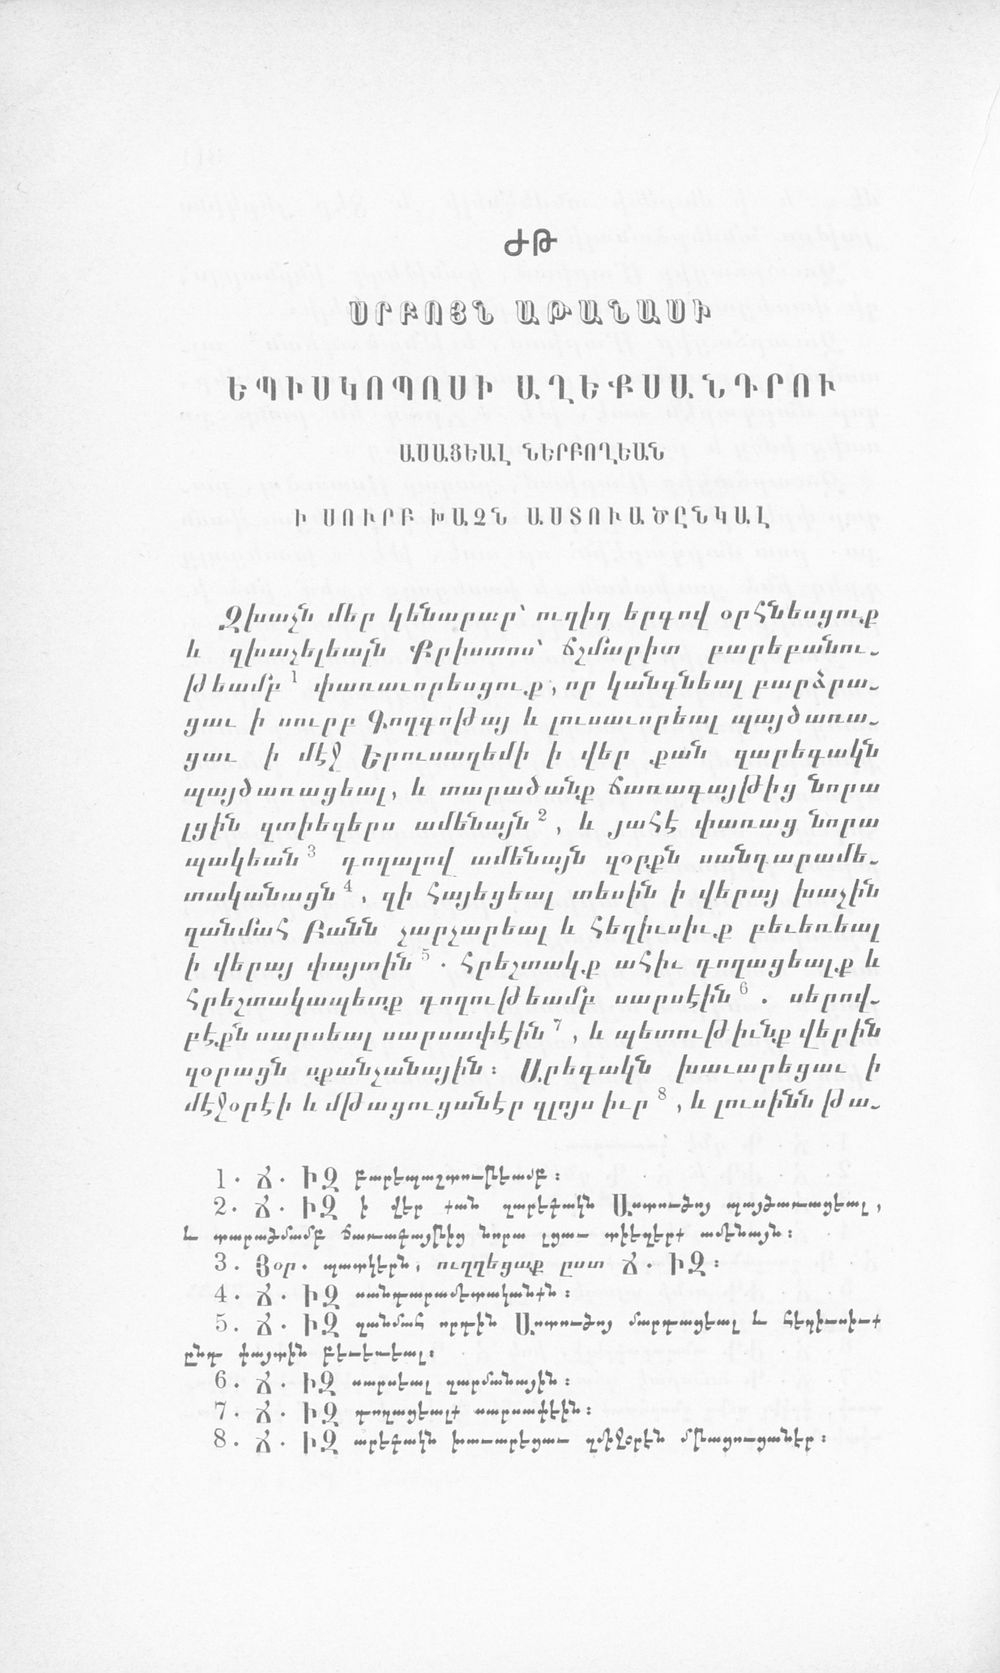 ԺԹ
ՍՐԲՈՅՆ ԱԹԱՆԱՍԻ
ԵՊԻՍԿՈՊՈՍԻ ԱՂԵՔՍԱՆԴՐՈՒ
ԱՍԱՑԵԱԼ ՆԵՐԲՈՂԵԱՆ
Ի ՍՈՒՐԲ ԽԱՉՆ ԱՍՏՈՒԱԾԸՆԿԱԼ
Զխաչն մեր կենարար՝ ուղիղ երգով օրհնեսցուք
և զխաչելեալն Քրիստոս՝ ճշմարիտ բարեբանու-
թեամբ 1 փառաւորեսցուք, որ կանգնեալ բարձրա-
ցաւ ի սուրբ Գողգոթայ և լուսաւորեալ պայծառա-
ցաւ ի մէջ Երուսաղեմի ի վեր քան զարեգակն
պայծառացեալ, և տարածանք ճառագայթից նորա
լցին զտիեզերս ամենայն 2, և յահէ փառաց նորա
պակեան 3 դողալով ամենայն զօրքն սանդարամե-
տականացն 4, զի հայեցեալ տեսին ի վերայ խաչին
զանմահ Բանն չարչարեալ և հեղիւսիւք բեւեռեալ
ի վերայ փայտին 5. հրեշտակք ահիւ դողացեալք և
հրեշտակապետք դողութեամբ սարսէին 6. սերով-
բէքն սարսեալ սարսափէին 7, և պետութիւնք վերին
զօրացն սքանչանային: Արեգակն խաւարեցաւ ի
մէջօրէի և մթացուցանէր զլոյս իւր 8, և լուսինն թա-
1. Ճ. ԻԶ բարեպաշտութեամբ:
2. Ճ. ԻԶ ի վեր քան զարեգակն Աստուծոյ պայծառացեալ,
և տարածմամբ ճառագայթից նորա լցաւ տիեզերք ամենայն:
3. Յօր. պատկերն, ուղղեցաք ըստ Ճ. ԻԶ:
4. Ճ. ԻԶ սանդարամետականքն:
5. Ճ. ԻԶ զանմահ որդին Աստուծոյ մարդացեալ և հեղիւսիւք
ընդ փայտին բեւեռեալ:
6. Ճ. ԻԶ սարսեալ զարմանային:
7. Ճ. ԻԶ դողացեալք սարսափեին:
8. Ճ. ԻԶ արեգակն խաւարեցաւ զմիջօրէն մթացուցանէր: